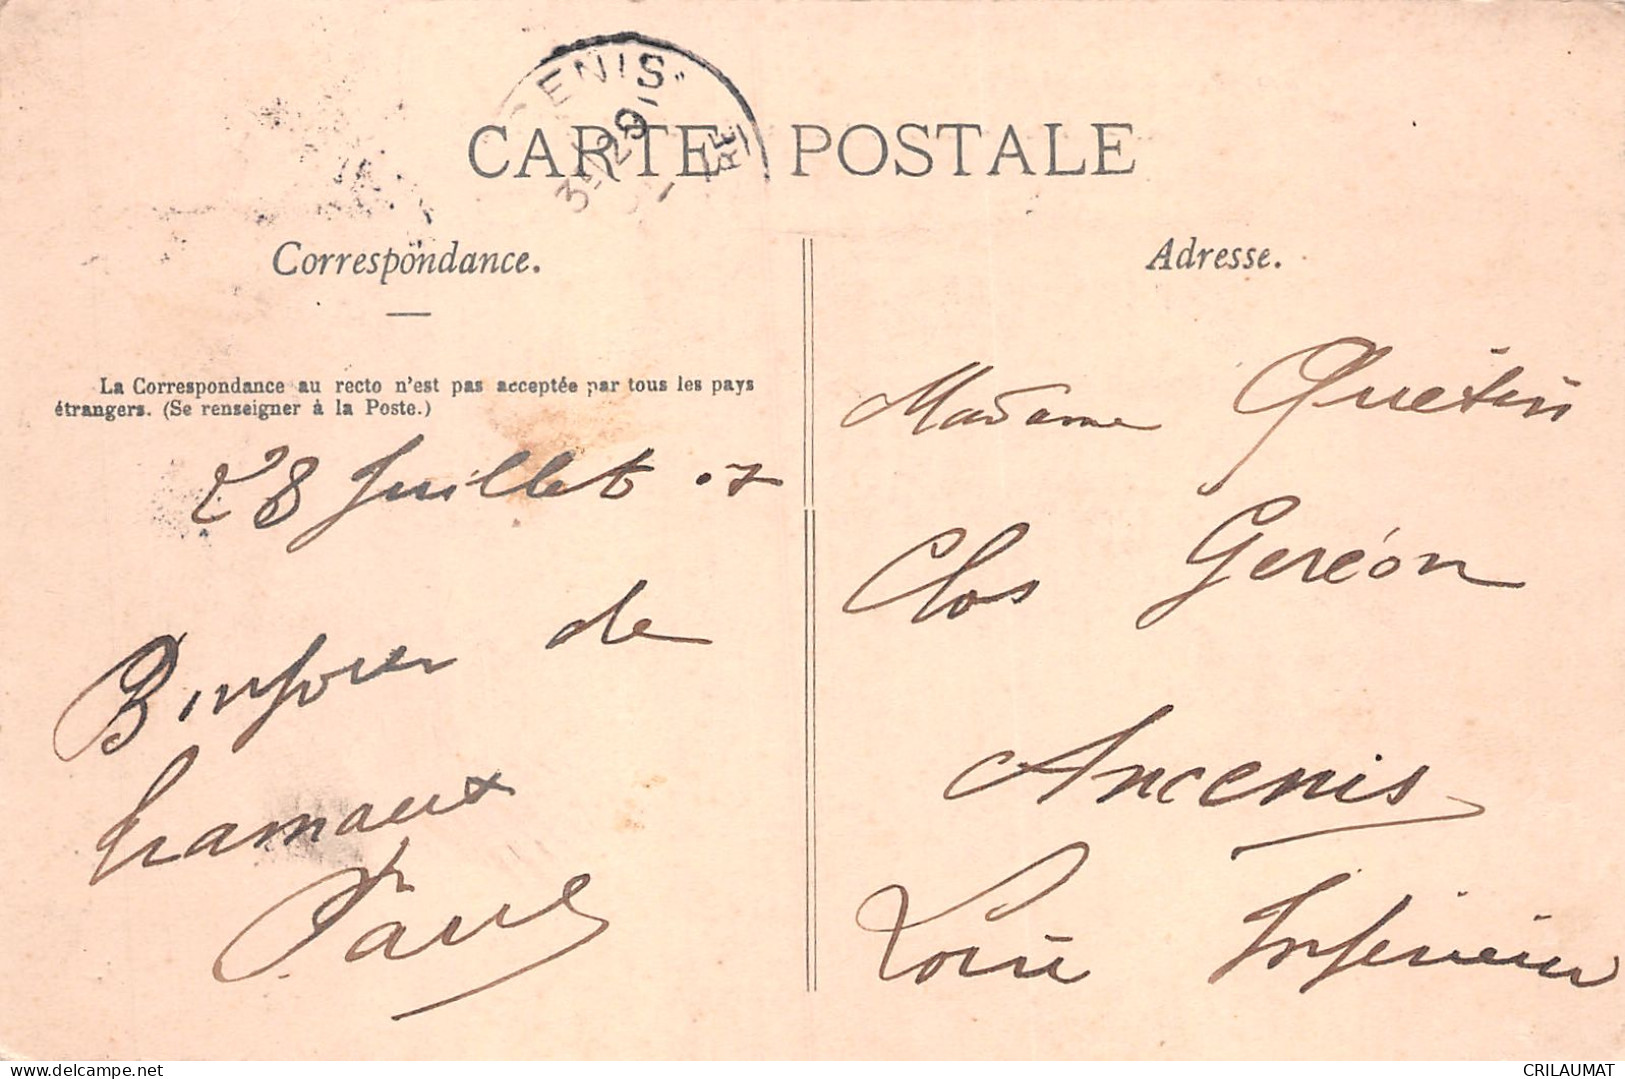 ENIS
3 /29
RE
CARTE POSTALE
Correspondance.
Adresse.
La Correspondance au recto n'est pas acceptée par tous les pays
étrangers. (Se renseigner à la Poste.)
28 Juillet 07
Bonjour de
Paul
Madame Quétin
Clos Geréon
Ancenis
Loire Inférieure
© delcampe.net
CRILAUMAT